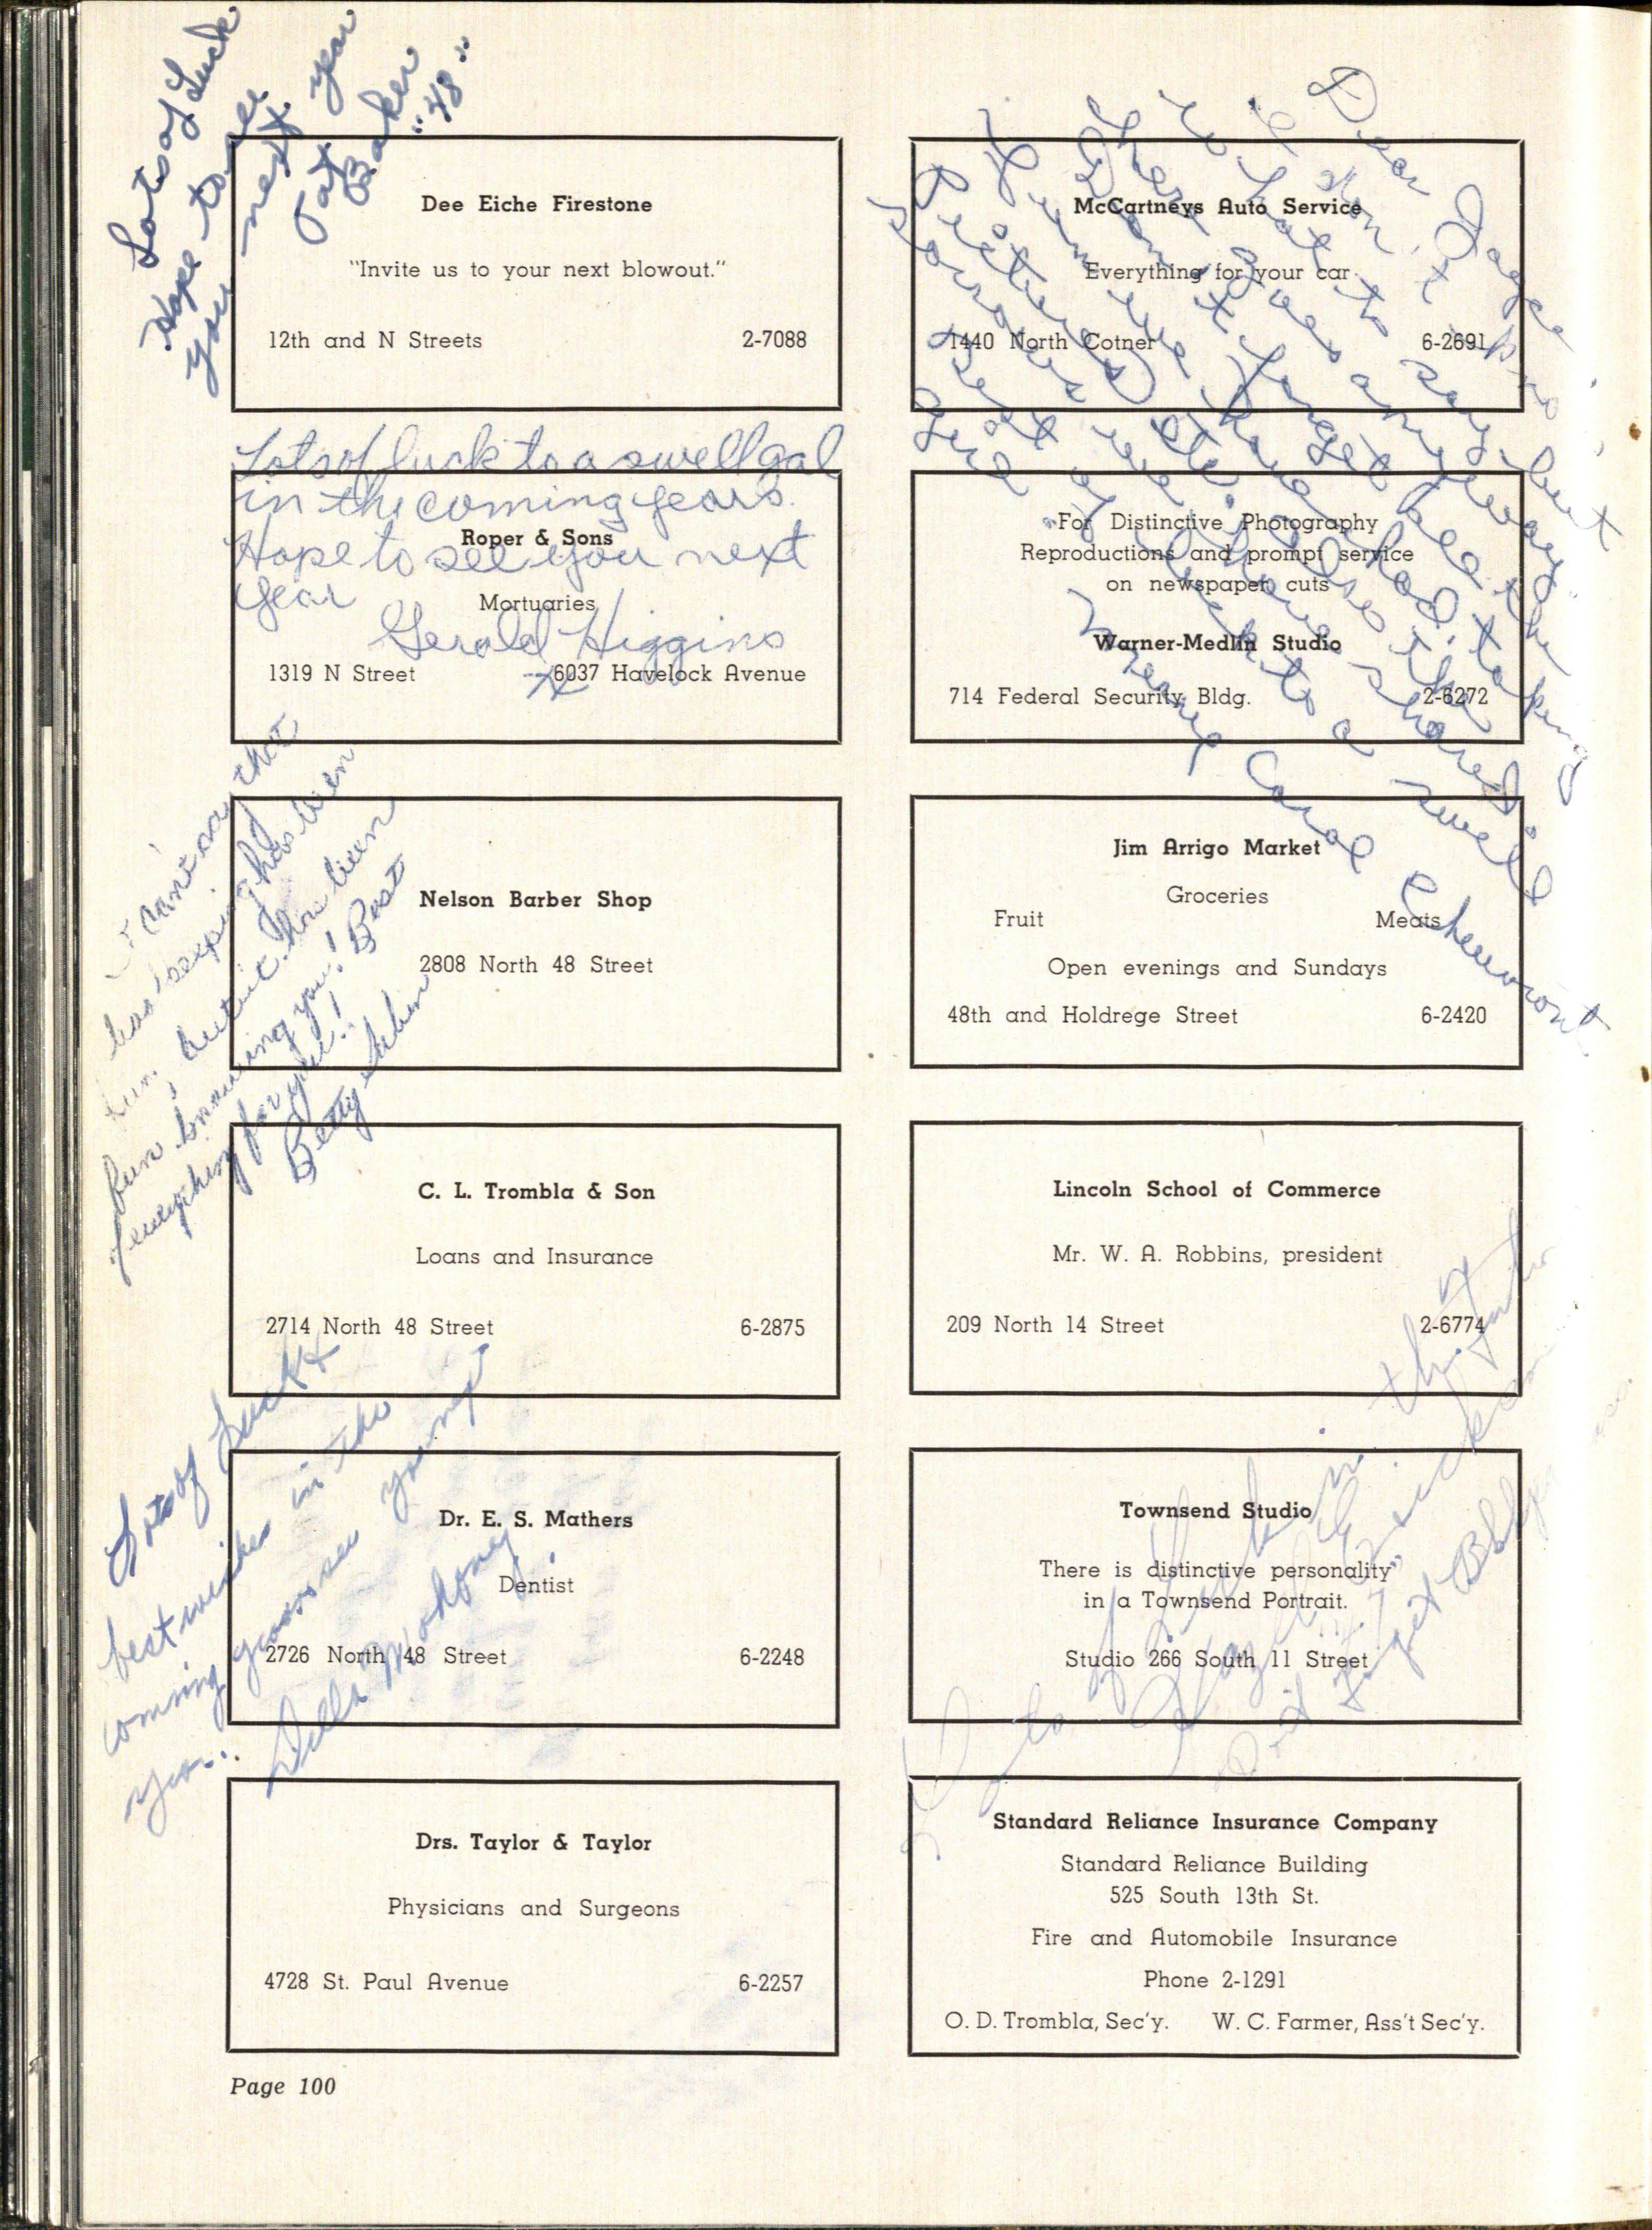 Lots of Luck
Hope to see
you next year
Pat Baker
"48"
Dee Eiche Firestone
"Invite us to your next blowout."
12th and N Streets 2-7088
Lots of luck to a swell gal
in the coming years.
Hope to see you next
year
Gerald Higgins
Roper & Sons
Mortuaries
1319 N Street 6037 Havelock Avenue
I can't say that
has been
fun, but it has been
fun knowing you! Best
everything for you!
Betty
Nelson Barber Shop
2808 North 48 Street
C. L. Trombla & Son
Loans and Insurance
2714 North 48 Street 6-2875
Lots of Luck &
best wishes in the
coming years see you next
year.
Della Mahoney
Dr. E. S. Mathers
Dentist
2726 North 48 Street 6-2248
Drs. Taylor & Taylor
Physicians and Surgeons
4728 St. Paul Avenue 6-2257
Dear
I don't know
what to say but
here goes anyway.
Don't forget all the
fun we have had taking
pictures etc. Also the
sorrows we have shared.
Best of luck to a swell
girl
Carol Chenvront
McCartneys Auto Service
Everything for your car
1440 North Cotner 6-2691
For Distinctive Photography
Reproductions and prompt service
on newspaper cuts
Warner-Medlin Studio
714 Federal Security Bldg. 2-6272
Jim Arrigo Market
Groceries
Fruit Meats
Open evenings and Sundays
48th and Holdrege Street 6-2420
Lincoln School of Commerce
Mr. W. A. Robbins, president
209 North 14 Street 2-6774
Lots of Luck in the future
Hazel
Don't forget
Townsend Studio
There is distinctive personality
in a Townsend Portrait.
Studio 266 South 11 Street
Standard Reliance Insurance Company
Standard Reliance Building
525 South 13th St.
Fire and Automobile Insurance
Phone 2-1291
O. D. Trombla, Sec'y. W. C. Farmer, Ass't Sec'y.
Page 100